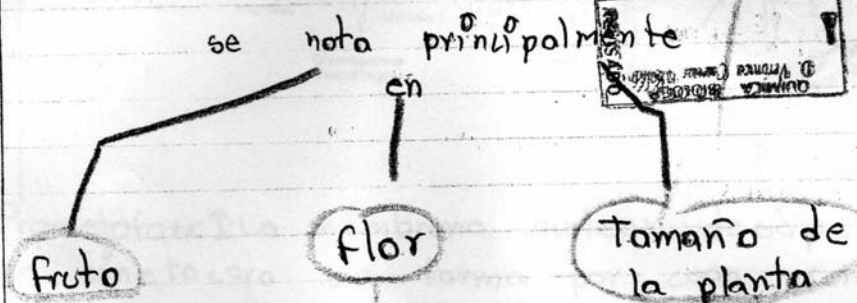 se nota principalmente
en
REVISADO
QUIMICA
BIOLOGIA
fruto
flor
Tamaño de
la planta